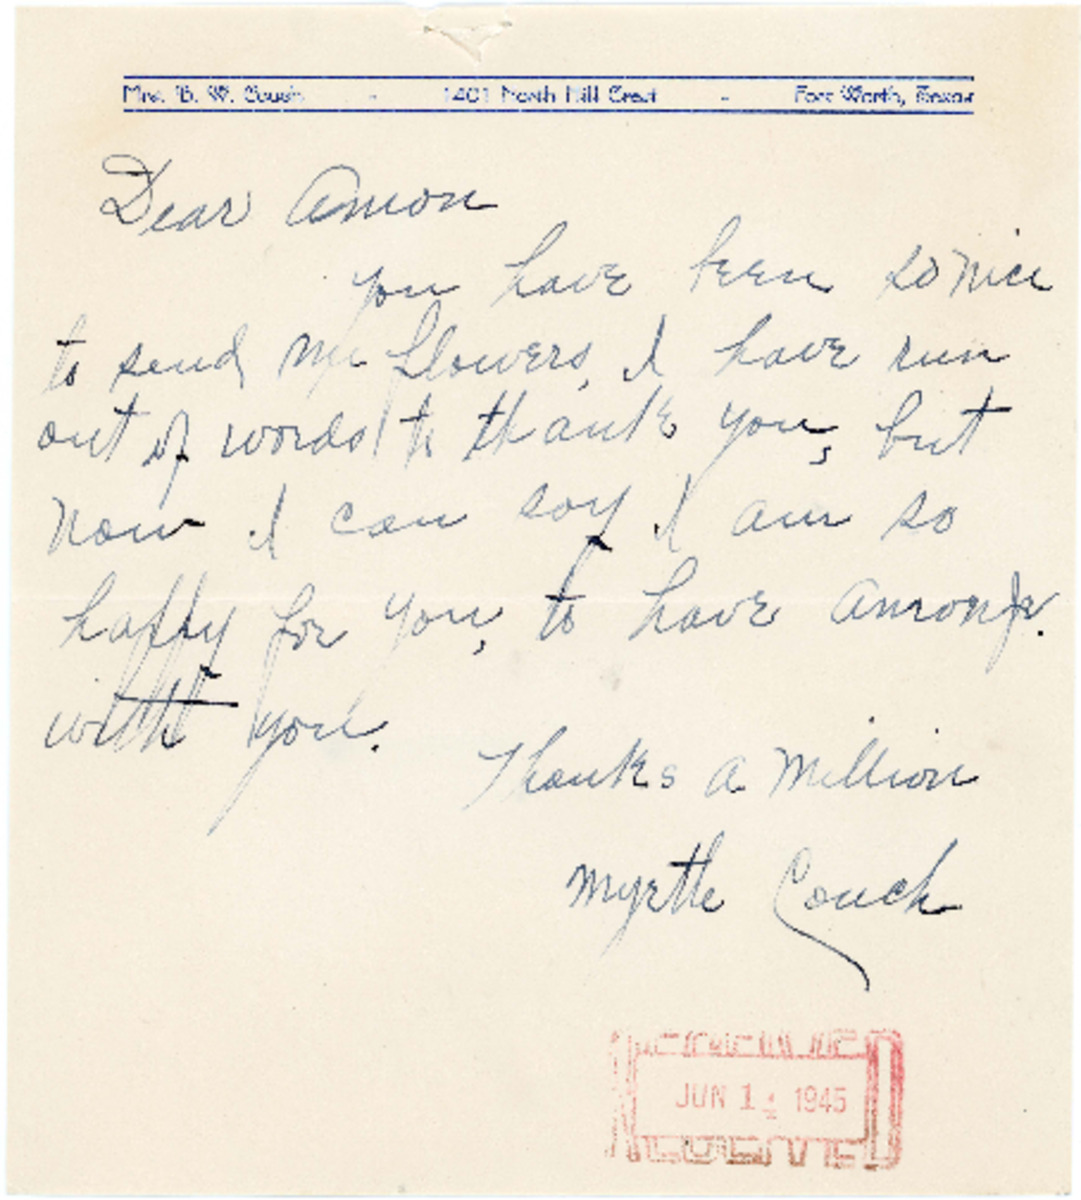 Mrs. B. W. Couch - 1401 North Hill Crest - Fort Worth, Texas
Dear Amon
you have been so nice
to send me flowers, I have run
out of words to thank you, but
now I can say I am so
happy for you, to have Amon Jr.
with you.
Thanks a Million
Myrtle Couch
RECEIVED
JUN 1 1945
RECEIVED